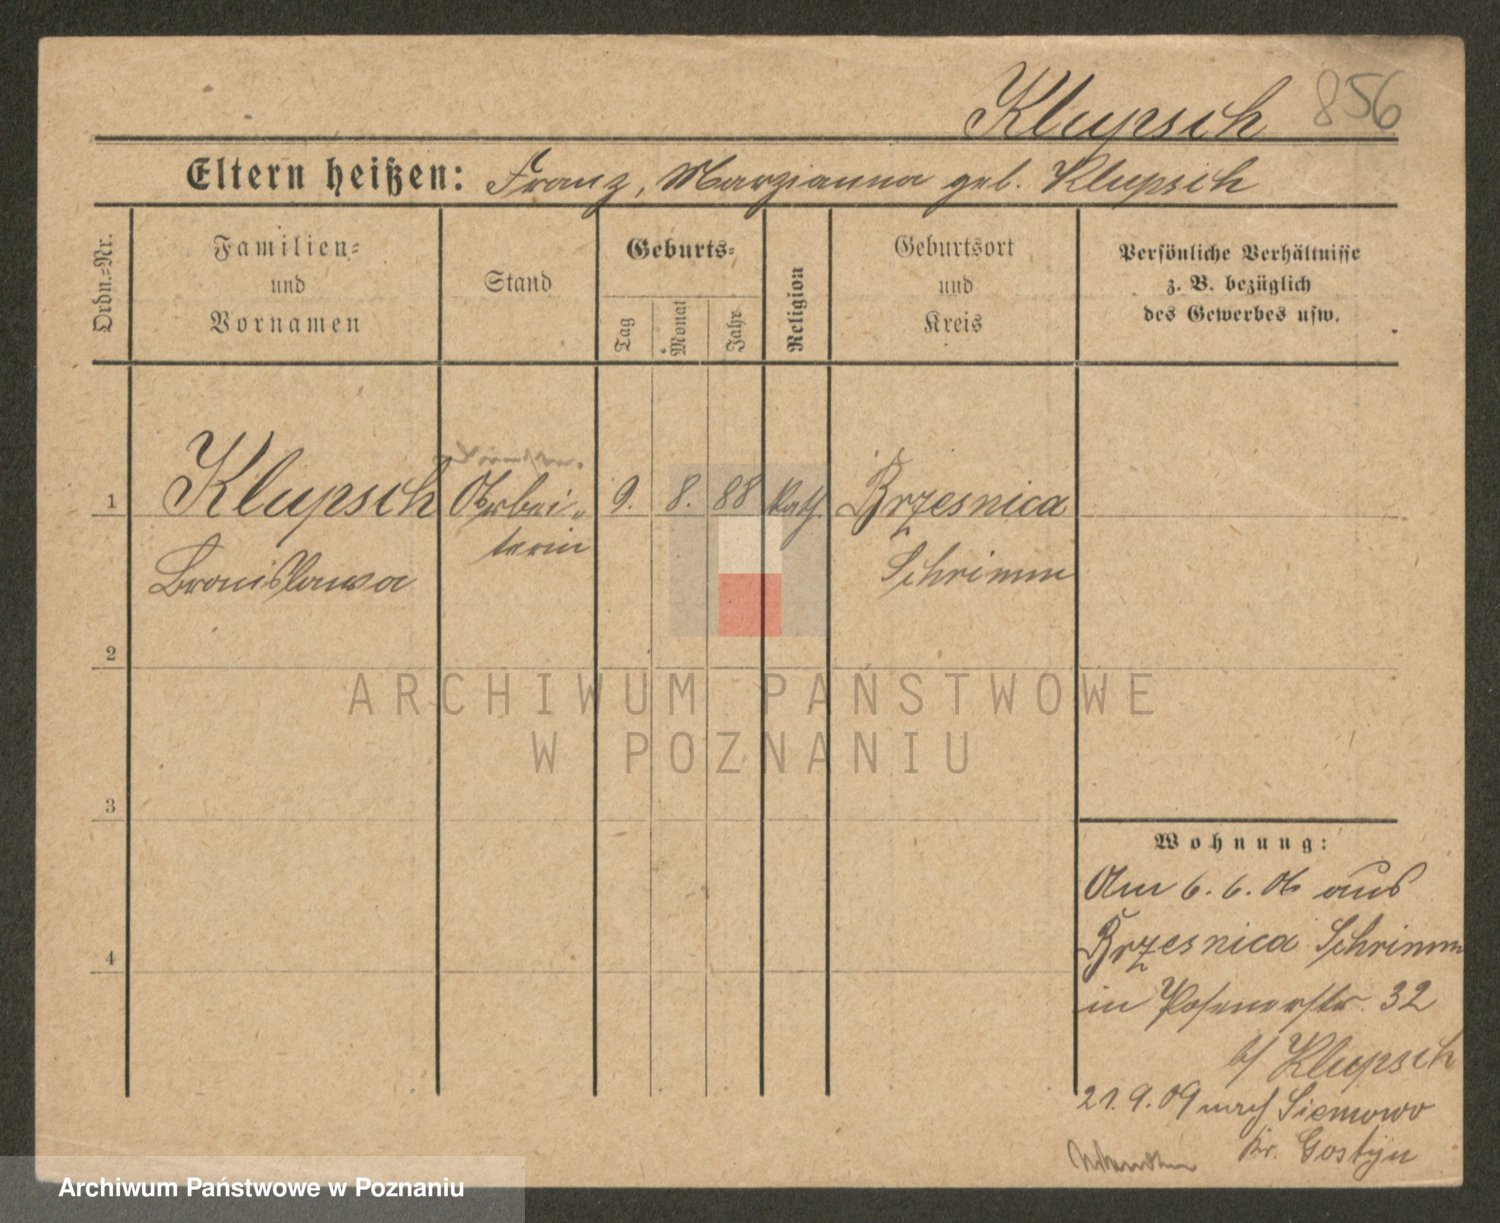 Klupsch 856
Eltern heißen: Franz, Marzianna geb. Klupsch
Ordn.-Nr.
Familien-
und
Vornamen
Stand
Geburts-
Tag
Monat
Jahr
Religion
Geburtsort
und
Kreis
Persönliche Verhältnisse
z. B. bezüglich
des Gewerbes usw.
1 Klupsch Arbei- 9. 8. 88 kath. Brzesnica
Bronislawa terin Schrimm
2
3
4
Wohnung:
Am 6. 6. 06 aus
Brzesnica Schrimm
in Posenerstr. 32
b/ Klupsch
21.9.09 nach Siemowo
Kr. Gostyn
ARCHIWUM PAŃSTWOWE
W POZNANIU
Archiwum Państwowe w Poznaniu